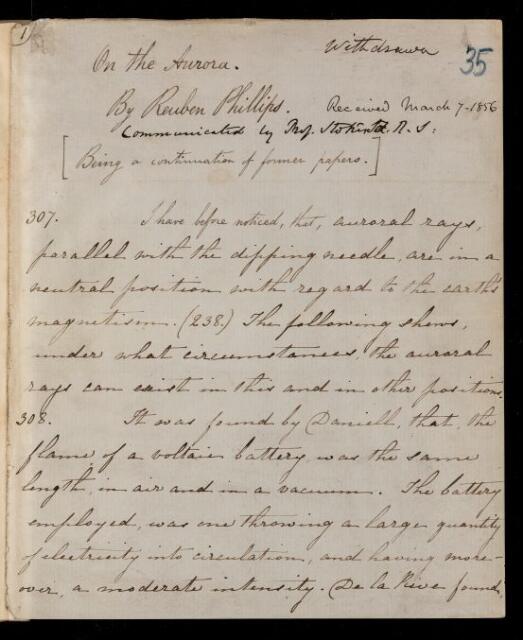 1
Withdrawn
35
On the Aurora.
By Reuben Phillips. Received March 7-1856
Communicated by Prof. Stokes R. S:
[Being a continuation of former papers.]
307. I have before noticed, that, auroral rays,
parallel with the dipping needle, are in a
neutral position with regard to the earth's
magnetism. (238.) The following shews,
under what circumstances, the auroral
rays can exist in this and in other positions.
308. It was found by Daniell, that, the
flame of a voltaic battery, was the same
length, in air and in a vacuum. The battery
employed, was one throwing a large quantity
of electricity into circulation, and having more-
over, a moderate intensity. De la Rive found,